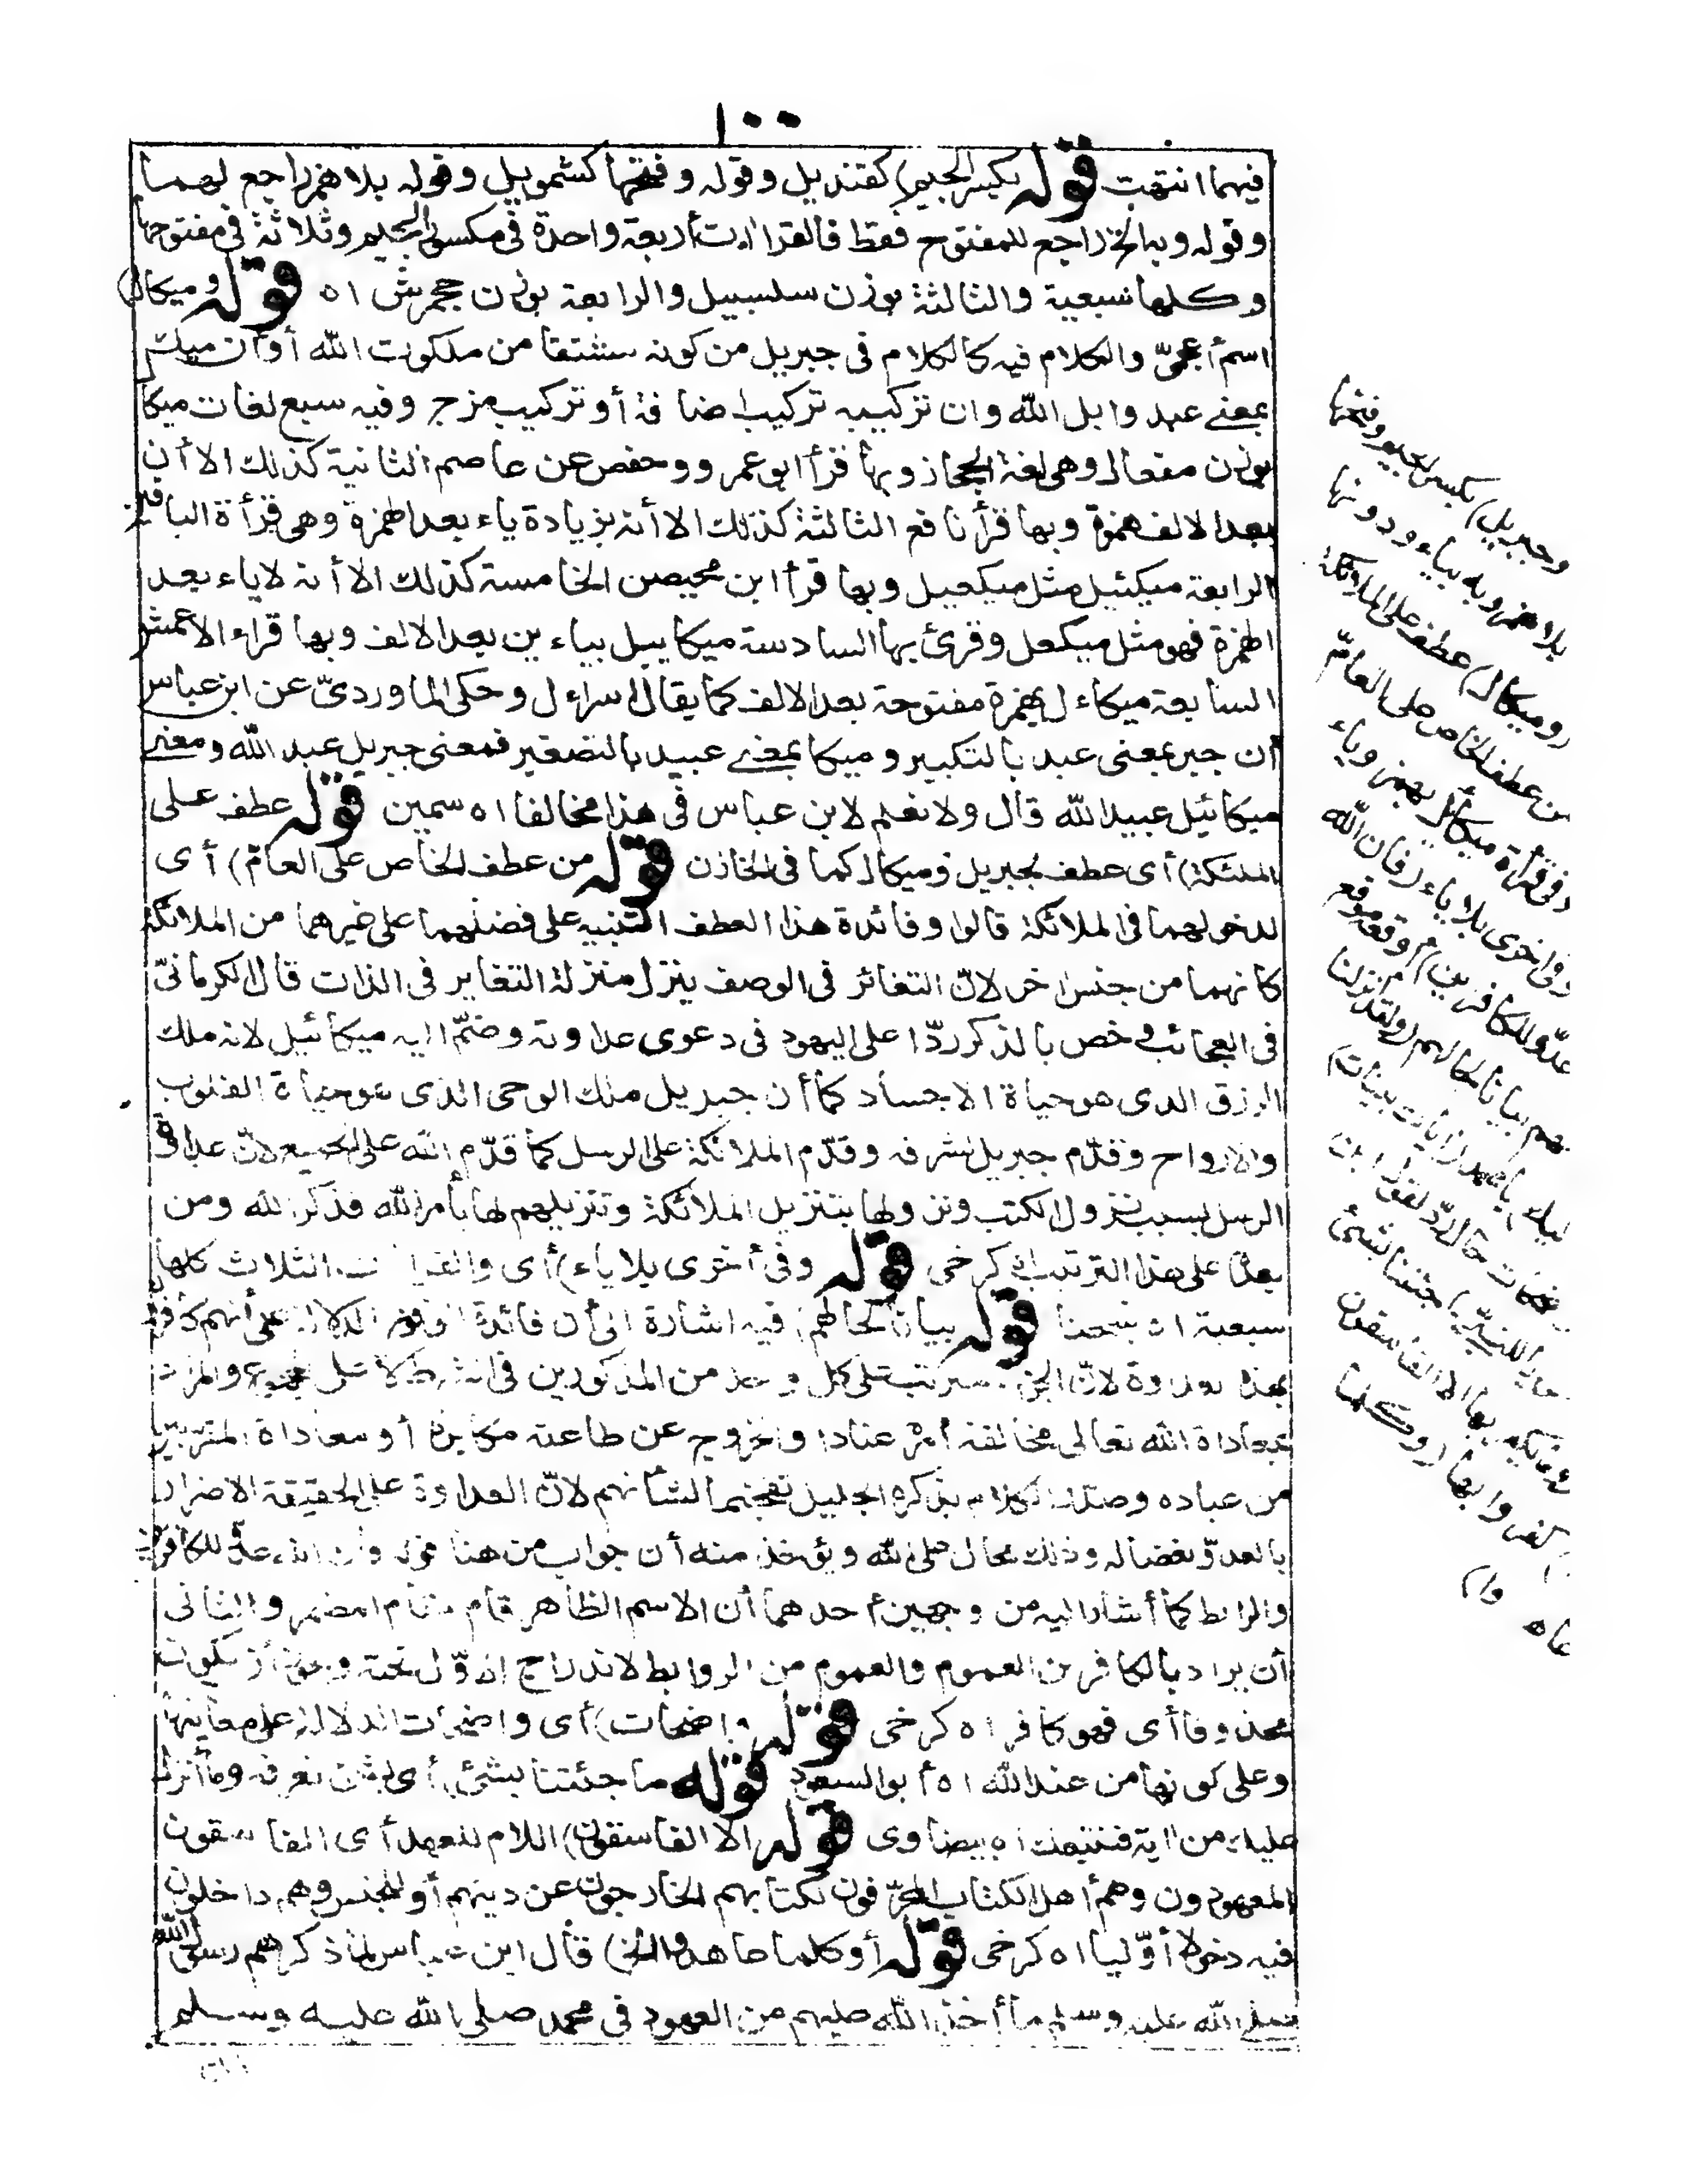 ١٠٠
فيهما انتهت قوله بكسر الجيم) كقنديل وقوله وفتحها كشمويل وقوله بلا همز راجع لهما
وقوله وبه الخ راجع للمفتوح فقط فالقراآت أربعة واحدة في مكسور الجيم وثلاثة في مفتوحها
وكلها سبعية والثالثة بوزن سلسبيل والرابعة بوزن جحمرش اه قوله وميكال)
اسم أعجمىّ والكلام فيه كالكلام فى جبريل من كونه مشتقا من ملكوت الله أو أن ميك
بمعنى عبد وايل الله وان تركيبه تركيب اضافة أو تركيب مزج وفيه سبع لغات ميكال
بوزن مفعال وهى لغة الحجاز وبها قرأ ابو عمرو وحفص عن عاصم الثانية كذلك الا أن
بعد الالف همزة وبها قرأ نافع الثالثة كذلك الا أنه بزيادة ياء بعد الهمزة وهى قرأة الباقين
الرابعة ميكئيل مثل ميكعيل وبها قرأ ابن محيصن الخامسة كذلك الا أنه لا ياء بعد
الهمزة فهو مثل ميكعل وقرئ بها السادسة ميكاييل بياءين بعد الالف وبها قراء الاعمش
السابعة ميكاءل بهمزة مفتوحة بعد الالف كما يقال اسراءل وحكى الماوردىّ عن ابن عباس
أن جبر بمعنى عبد بالتكبير وميكا بمعنى عبيد بالتصغير فمعنى جبريل عبد الله ومعنى
ميكائيل عبيد الله قال ولا نعلم لابن عباس فى هذا مخالفا اه سمين قوله عطف على
الملئكة) أى عطف لجبريل وميكال كما فى الخازن قوله من عطف الخاص على العامّ) أى
لدخولهما فى الملائكة قالوا وفائدة هذا العطف التنبيه على فضلهما على غيرهما من الملائكة
كانهما من جنس اخر لانّ التغائر فى الوصف ينزل منزلة التغاير فى الذات قال الكرمانىّ
فى العجائب وخص بالذكر ردّا على اليهود فى دعوى عداوته وضمّ اليه ميكائيل لانه ملك
الرزق الذى هو حياة الاجساد كما أن جبريل ملك الوحى الذى هو حياة القلوب
والارواح وقدّم جبريل لشرفه وقدّم الملائكة على الرسل كما قدّم الله على الجميع لانّ عداوة
الرسل بسبب نزول الكتب ونزولها بتنزيل الملائكة وتنزيلهم لها بأمر الله فذكر الله ومن
بعده على هذا الترتيب اه كرخى قوله وفى أخرى بلا ياء) أى والقراآت الثلاث كلها
سبعية اه شيخنا قوله بيانا لحالهم) فيه اشارة الى أن فائدة الدلالة على أنهم كافرون
بهذه العداوة لانّ الجزاء مترتب على كل واحد من المذكورين فى الشرط لا على المجموع والمراد
بمعاداة الله تعالى مخالفة أمره عنادا والخروج عن طاعته مكابرة أو معاداة المقربين
من عباده وصدّر الكلام بذكره الجليل تفخيما لشأنهم لانّ العداوة على الحقيقة الاضرار
بالعدوّ بغضا له وذلك محال على الله ويؤخذ منه أن جواب من هنا قوله فان الله عدوّ للكافرين
والرابط كما أشار اليه من وجهين أحدهما أن الاسم الظاهر قام مقام المضمر والثانى
أن يراد بالكافرين العموم والعموم من الروابط لاندراج الاوّل تحته ويجوز أن يكون
محذوفا أى فهو كافر اه كرخى قوله واضحات) أى واضحات الدلالة على معانيها
وعلى كونها من عند الله اه أبو السعود قوله ما جئتنا بشئ) أى بشئ نعرفه وما أنزل
عليك من اية فنتبعك اه بيضاوى قوله الا الفاسقون) اللام للعهد أى الفاسقون
المعهودون وهم أهل الكتاب المحرّفون لكتابهم الخارجون عن دينهم أو للجنس وهم داخلون
فيه دخولا أوّليا اه كرخى قوله أو كلما عاهدوا الخ) قال ابن عباس لما ذكرهم رسول الله
صلى الله عليه وسلم ما أخذ الله عليهم من العهود فى محمد صلى الله عليه وسلم
وجبريل) بكسر الجيم وفتحها
بلا همز وبه بياء ودونها
(وميكال) عطف على الملائكة
من عطف الخاص على العامّ
وفى قرأة ميكائل بهمز وياء
وفى اخرى بلا ياء (فان الله
عدوّ للكافرين) أوقعه موقع
لهم بيانا لحالهم (ولقد انزلنا
اليك) يا محمد (آيات بينات)
واضحات حال ردّ لقول ابن
للنبىّ) ما جئتنا بشئ
(وما يكفر بها الا الفاسقون
كفروا بها (أوكلما
عاهدوا)